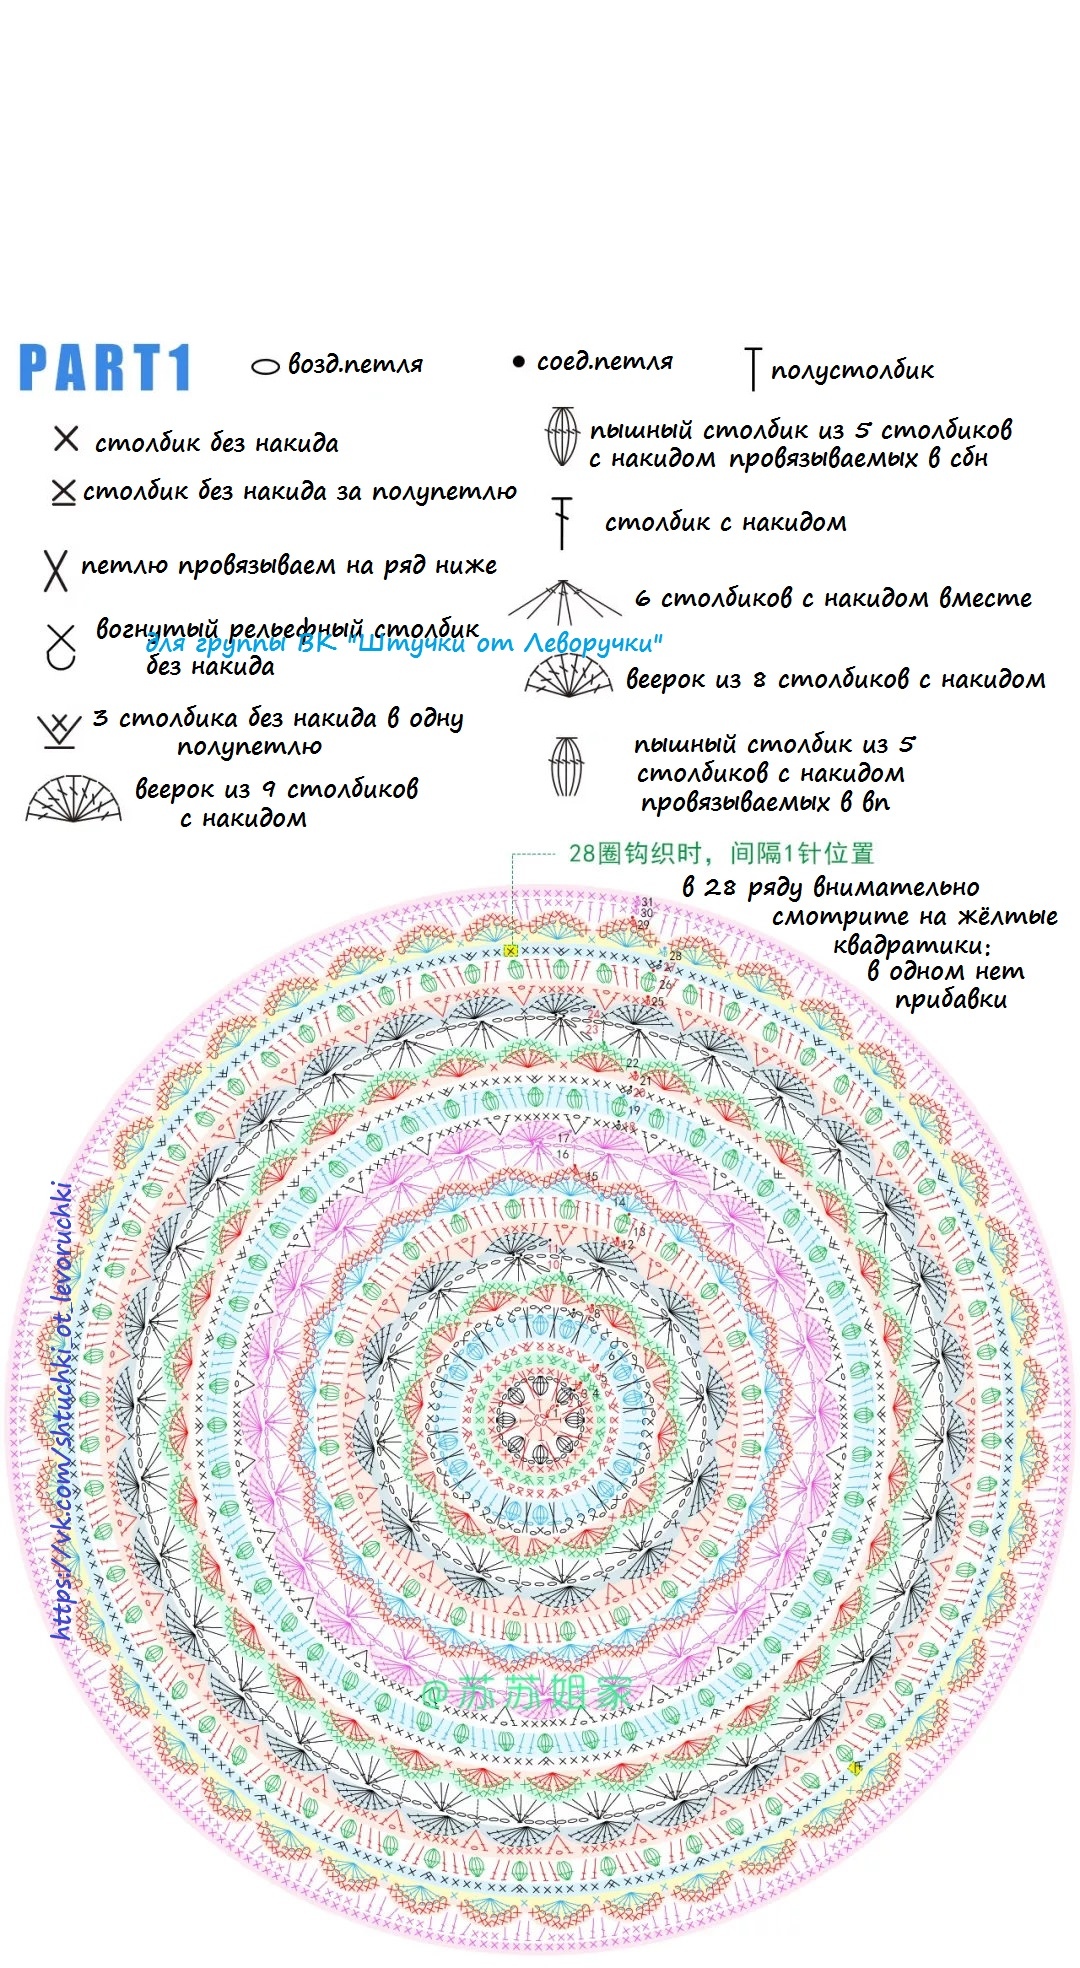 PART1
возд.петля
соед.петля
полустолбик
столбик без накида
пышный столбик из 5 столбиков
с накидом провязываемых в сбн
столбик без накида за полупетлю
столбик с накидом
петлю провязываем на ряд ниже
6 столбиков с накидом вместе
вогнутый рельефный столбик
без накида
для группы ВК "Штучки от Леворучки"
веерок из 8 столбиков с накидом
3 столбика без накида в одну
полупетлю
пышный столбик из 5
столбиков с накидом
провязываемых в вп
веерок из 9 столбиков
с накидом
28圈钩织时，间隔1针位置
в 28 ряду внимательно
смотрите на жёлтые
квадратики:
в одном нет
прибавки
31
30
29
28
27
26
25
24
23
22
21
20
19
18
17
16
15
14
13
12
11
10
9
8
https://vk.com/shtuchki_ot_levoruchki
@苏苏姐家